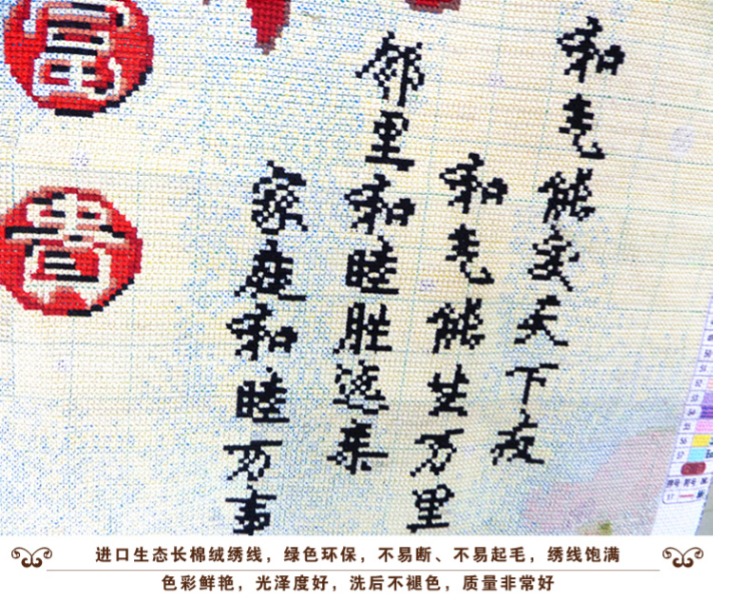 和气能交天下友
和气能生万里
邻里和睦胜远亲
家庭和睦万事
富
貴
进口生态长棉绒绣线，绿色环保，不易断、不易起毛，绣线饱满
色彩鲜艳，光泽度好，洗后不褪色，质量非常好